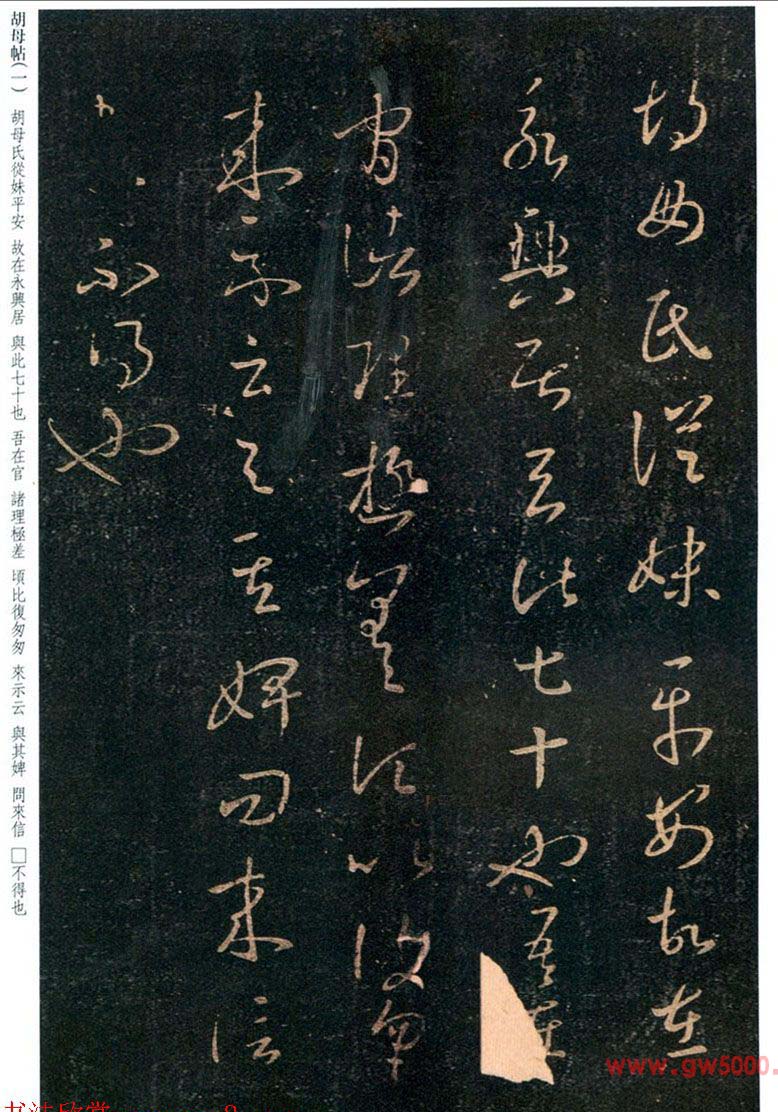 胡母氏從妹平安故在
永興居去此七十也吾在
官諸理極差頃比復勿
來示云與其婢問來信
不得也
胡母帖(一) 胡母氏從妹平安 故在永興居 與此七十也 吾在官 諸理極差 頃比復匆匆 來示云 與其婢 問來信 □不得也
www.gw5000.